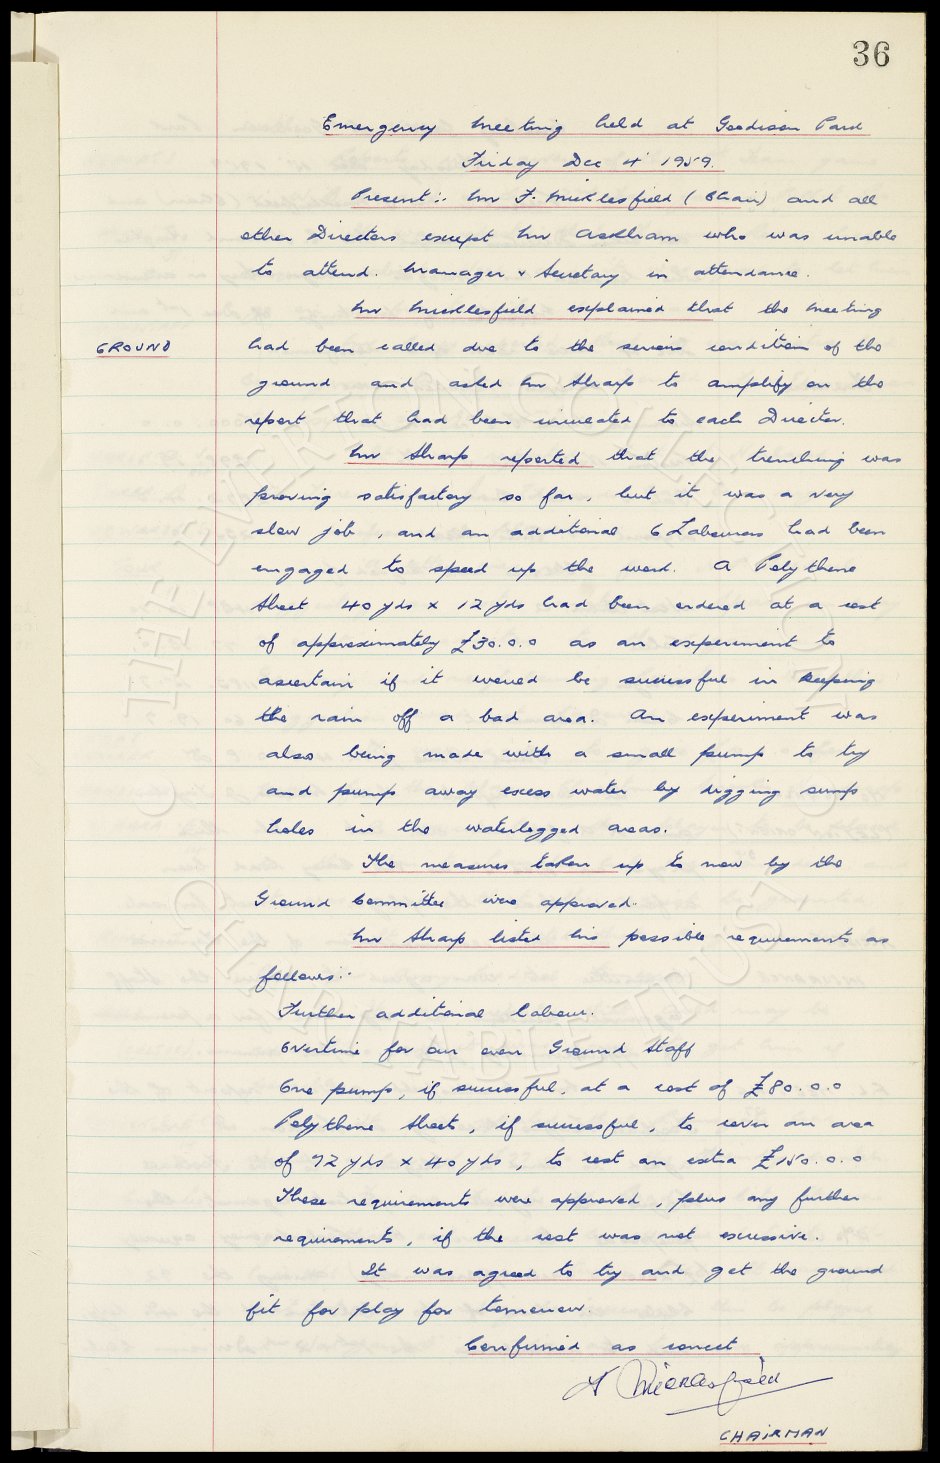 36
Emergency Meeting held at Goodison Park
Friday Dec 4th 1959.
Present:- Mr F. Micklesfield (Chair) and all
other Directors except Mr Askham who was unable
to attend. Manager & Secretary in attendance.
Mr Micklesfield explained that the meeting
GROUND
had been called due to the serious condition of the
ground and asked Mr Sharp to amplify on the
report that had been circulated to each Director.
Mr Sharp reported that the trenching was
proving satisfactory so far, but it was a very
slow job, and an additional 6 Labourers had been
engaged to speed up the work. A Polythene
Sheet 40 yds x 12 yds had been ordered at a cost
of approximately £30.0.0 as an experiment to
ascertain if it would be successful in keeping
the rain off a bad area. An experiment was
also being made with a small pump to try
and pump away excess water by digging sump
holes in the waterlogged areas.
The measures taken up to now by the
Ground Committee were approved.
Mr Sharp listed his possible requirements as
follows:-
Further additional labour.
Overtime for our own Ground Staff
One pump, if successful, at a cost of £80.0.0
Polythene Sheets, if successful, to cover an area
of 72 yds x 40 yds, to cost an extra £150.0.0
These requirements were approved, plus any further
requirements, if the cost was not excessive.
It was agreed to try and get the ground
fit for play for tomorrow.
Confirmed as correct
F Micklesfield
CHAIRMAN
THE EVERTON COLLECTION
CHARITABLE TRUST